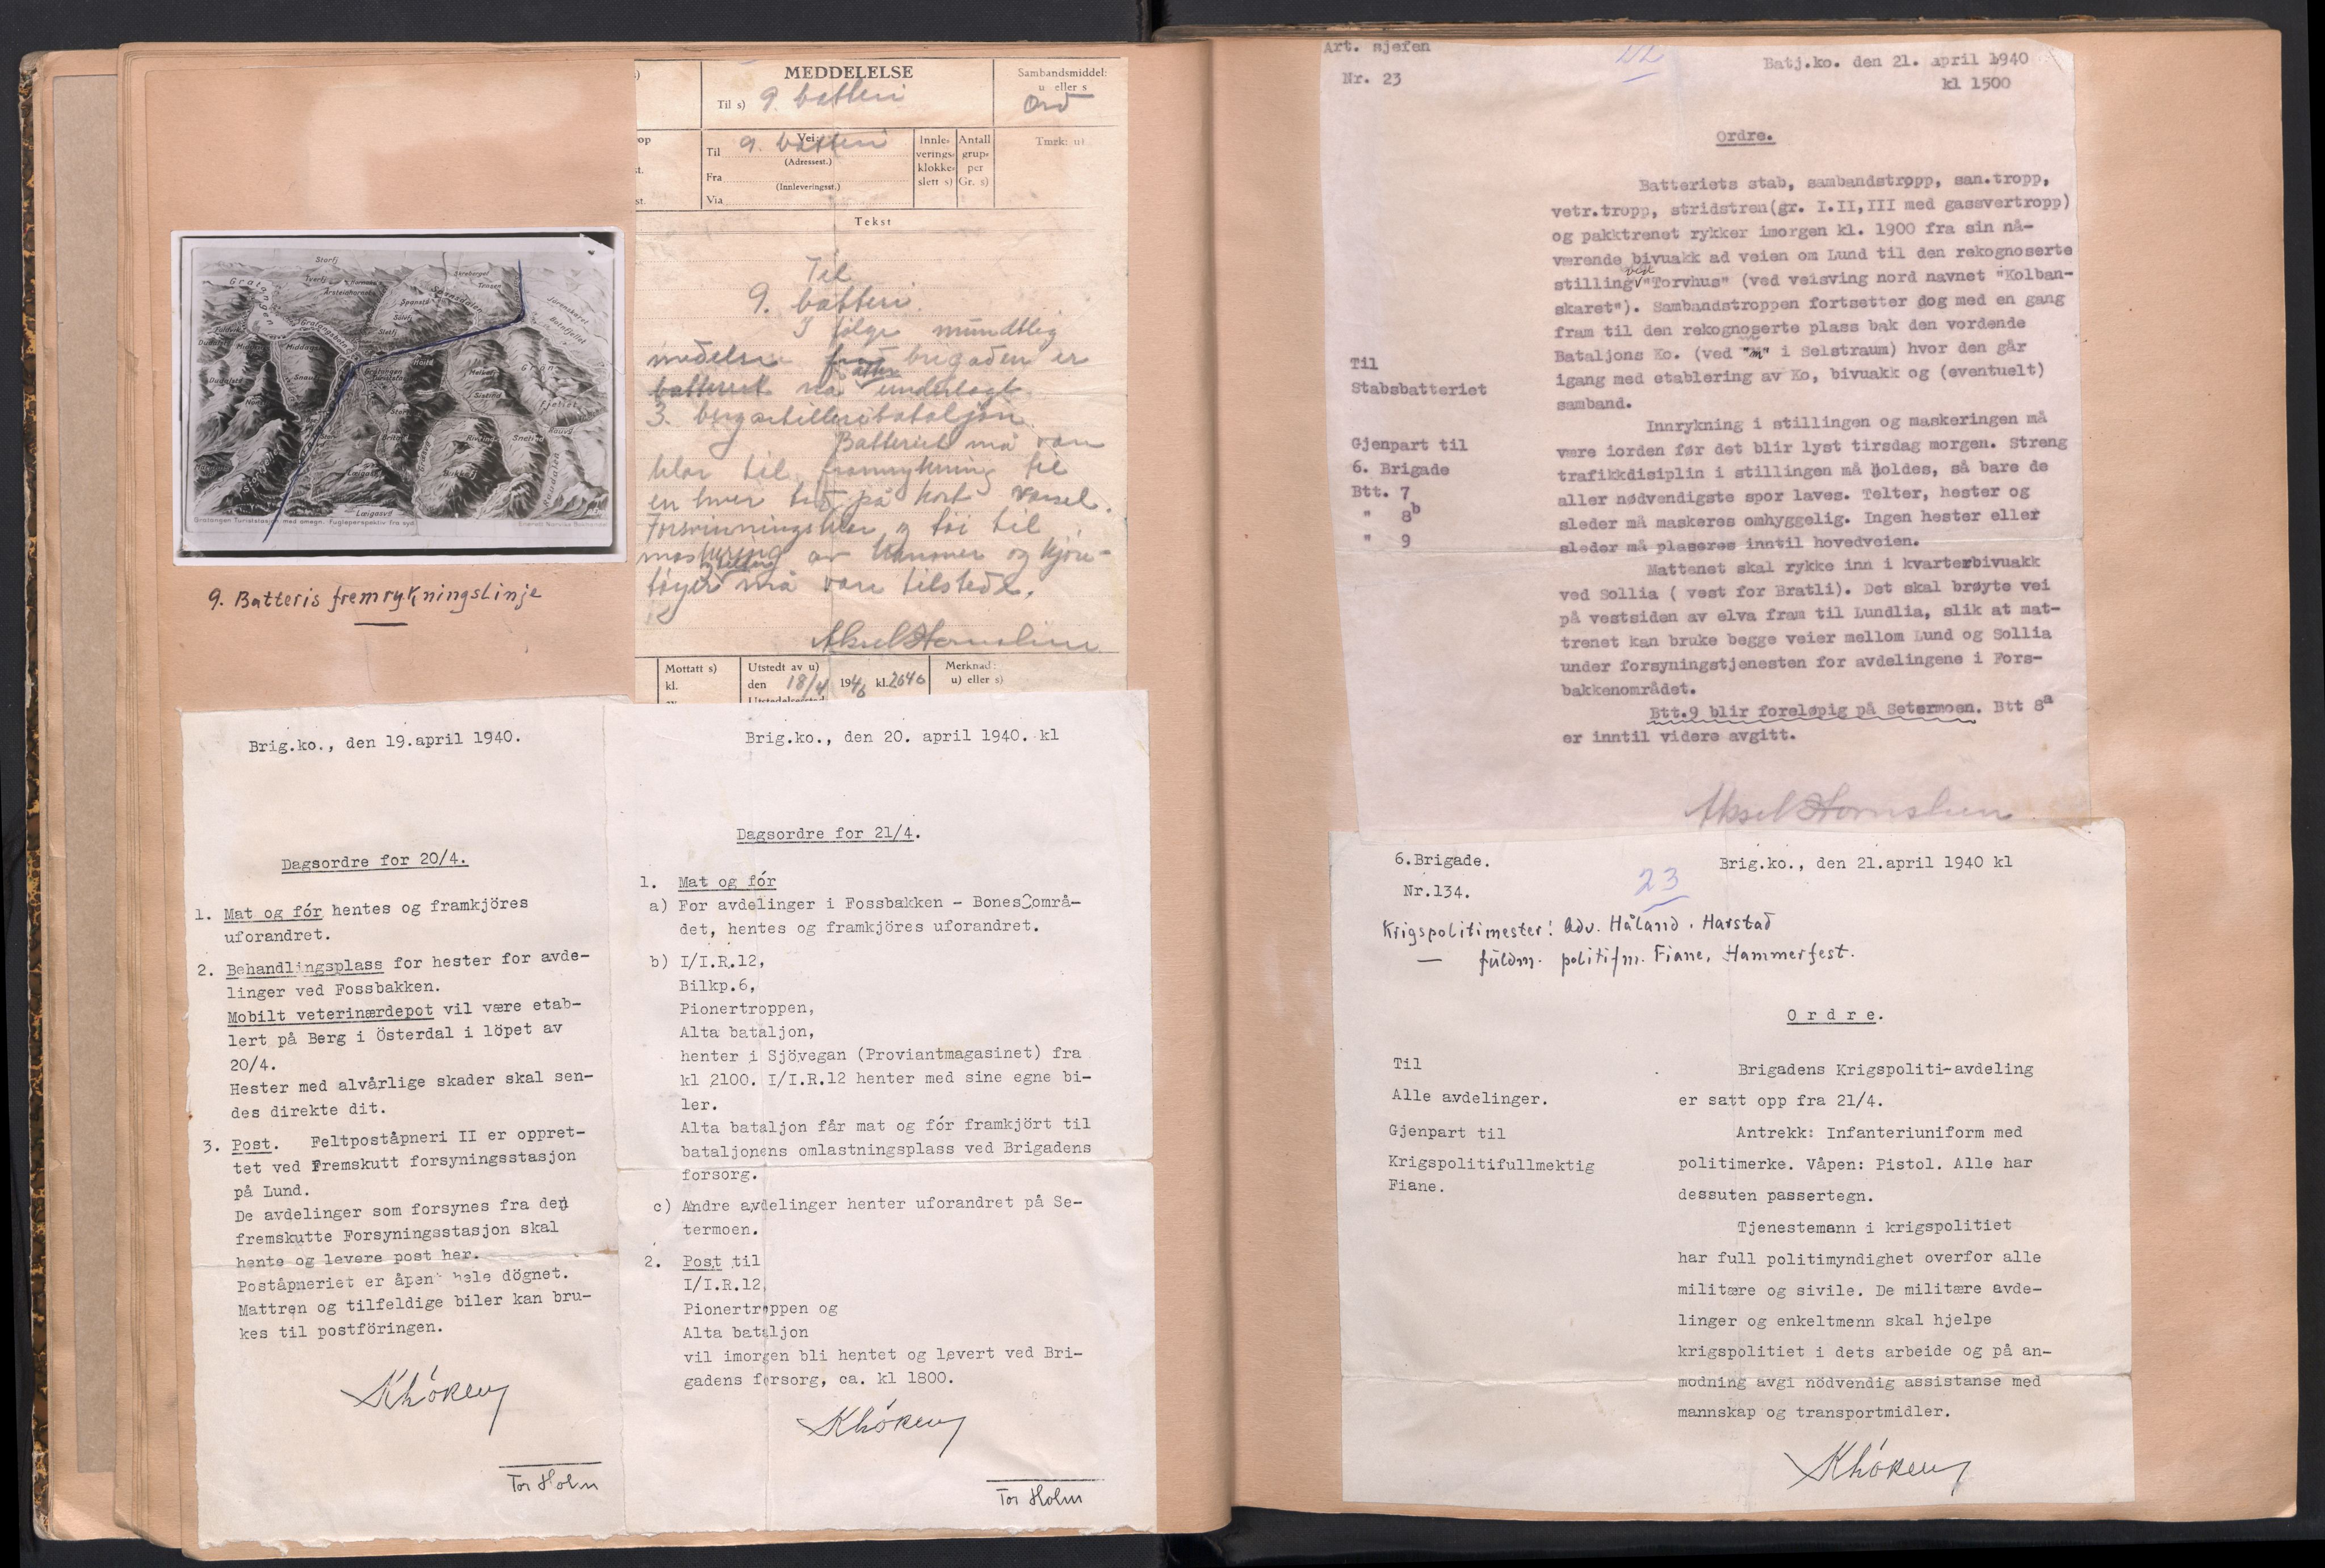 Storfj
Gratangen
9. Batteris fremrykningslinje
Gratangen Turiststasjon med omegn. Fugleperspektiv fra syd.
MEDDELELSE
Sambandsmiddel:
u eller s
Til s) 9. batteri
Ord
Vei:
Til 9. batteri
(Adressest.)
Fra
(Innleveringsst.)
Via
Innle-
verings-
klokke-
slett s)
Antall
grup-
per
Gr. s)
Tmrk: u)
Tekst
Til
9. batteri.
I følge mundtlig
medelse fra brigaden er
batteriet nå atter underlagt
3. bergartilleribataljon.
Batteriet må være
klar til framrykning til
en hver tid på kort varsel.
Forsvinningsklær og töi til
maskering av kanoner og kjøre-
tøyer må være tilstede.
Aksel Hornslien
Mottatt s)
kl.
Utstedt av u)
den 18/4 1940 kl. 2040
Merknad:
u) eller s)
Brig.ko., den 19.april 1940.
Dagsordre for 20/4.
1. Mat og fór hentes og framkjöres
uforandret.
2. Behandlingsplass for hester for avde-
linger ved Fossbakken.
Mobilt veterinærdepot vil være etab-
lert på Berg i Österdal i löpet av
20/4.
Hester med alvårlige skader skal sen-
des direkte dit.
3. Post. Feltpoståpneri II er oppret-
tet ved Fremskutt forsyningsstasjon
på Lund.
De avdelinger som forsynes fra den
fremskutte Forsyningsstasjon skal
hente og levere post her.
Poståpneriet er åpent hele dögnet.
Mattren og tilfeldige biler kan bru-
kes til postföringen.
Tor Holm
Brig.ko., den 20. april 1940. kl
Dagsordre for 21/4.
1. Mat og fór
a) For avdelinger i Fossbakken - Bones områ-
det, hentes og framkjöres uforandret.
b) I/I.R.12,
Bilkp.6,
Pionertroppen,
Alta bataljon,
henter i Sjövegan (Proviantmagasinet) fra
kl 2100. I/I.R.12 henter med sine egne bi-
ler.
Alta bataljon får mat og fór framkjört til
bataljonens omlastningsplass ved Brigadens
forsorg.
c) Andre avdelinger henter uforandret på Se-
termoen.
2. Post til
I/I.R.12,
Pionertroppen og
Alta bataljon
vil imorgen bli hentet og levert ved Bri-
gadens forsorg, ca. kl 1800.
Tor Holm
Art. sjefen
Nr. 23
22
Batj.ko. den 21. april 1940
kl 1500
Ordre.
Til
Stabsbatteriet
Gjenpart til
6. Brigade
Btt. 7
" 8b
" 9
Batteriets stab, sambandstropp, san.tropp,
vetr.tropp, stridstren(gr. I.II,III med gassvertropp)
og pakktrenet rykker imorgen kl. 1900 fra sin nå-
værende bivuakk ad veien om Lund til den rekognoserte
stilling ved "Torvhus" (ved veisving nord navnet "Kolban-
skaret"). Sambandstroppen fortsetter dog med en gang
fram til den rekognoserte plass bak den vordende
Bataljons Ko. (ved "m" i Selstraum) hvor den går
igang med etablering av Ko, bivuakk og (eventuelt)
samband.
Innrykning i stillingen og maskeringen må
være iorden før det blir lyst tirsdag morgen. Streng
trafikkdisiplin i stillingen må holdes, så bare de
aller nødvendigste spor laves. Telter, hester og
sleder må maskeres omhyggelig. Ingen hester eller
sleder må plaseres inntil hovedveien.
Mattenet skal rykke inn i kvarterbivuakk
ved Sollia ( vest for Bratli). Det skal brøyte vei
på vestsiden av elva fram til Lundlia, slik at mat-
trenet kan bruke begge veier mellom Lund og Sollia
under forsyningstjenesten for avdelingene i Fors-
bakkenområdet.
Btt.9 blir foreløpig på Setermoen. Btt 8a
er inntil videre avgitt.
Aksel Hornslien
6.Brigade.
Nr.134.
23
Brig.ko., den 21.april 1940 kl
Krigspolitimester: Adv. Håland. Harstad
— fuldm. politifm. Fiane, Hammerfest.
Ordre.
Til
Alle avdelinger.
Gjenpart til
Krigspolitifullmektig
Fiane.
Brigadens Krigspoliti-avdeling
er satt opp fra 21/4.
Antrekk: Infanteriuniform med
politimerke. Våpen: Pistol. Alle har
dessuten passertegn.
Tjenestemann i krigspolitiet
har full politimyndighet overfor alle
militære og sivile. De militære avde-
linger og enkeltmenn skal hjelpe
krigspolitiet i dets arbeide og på an-
modning avgi nödvendig assistanse med
mannskap og transportmidler.